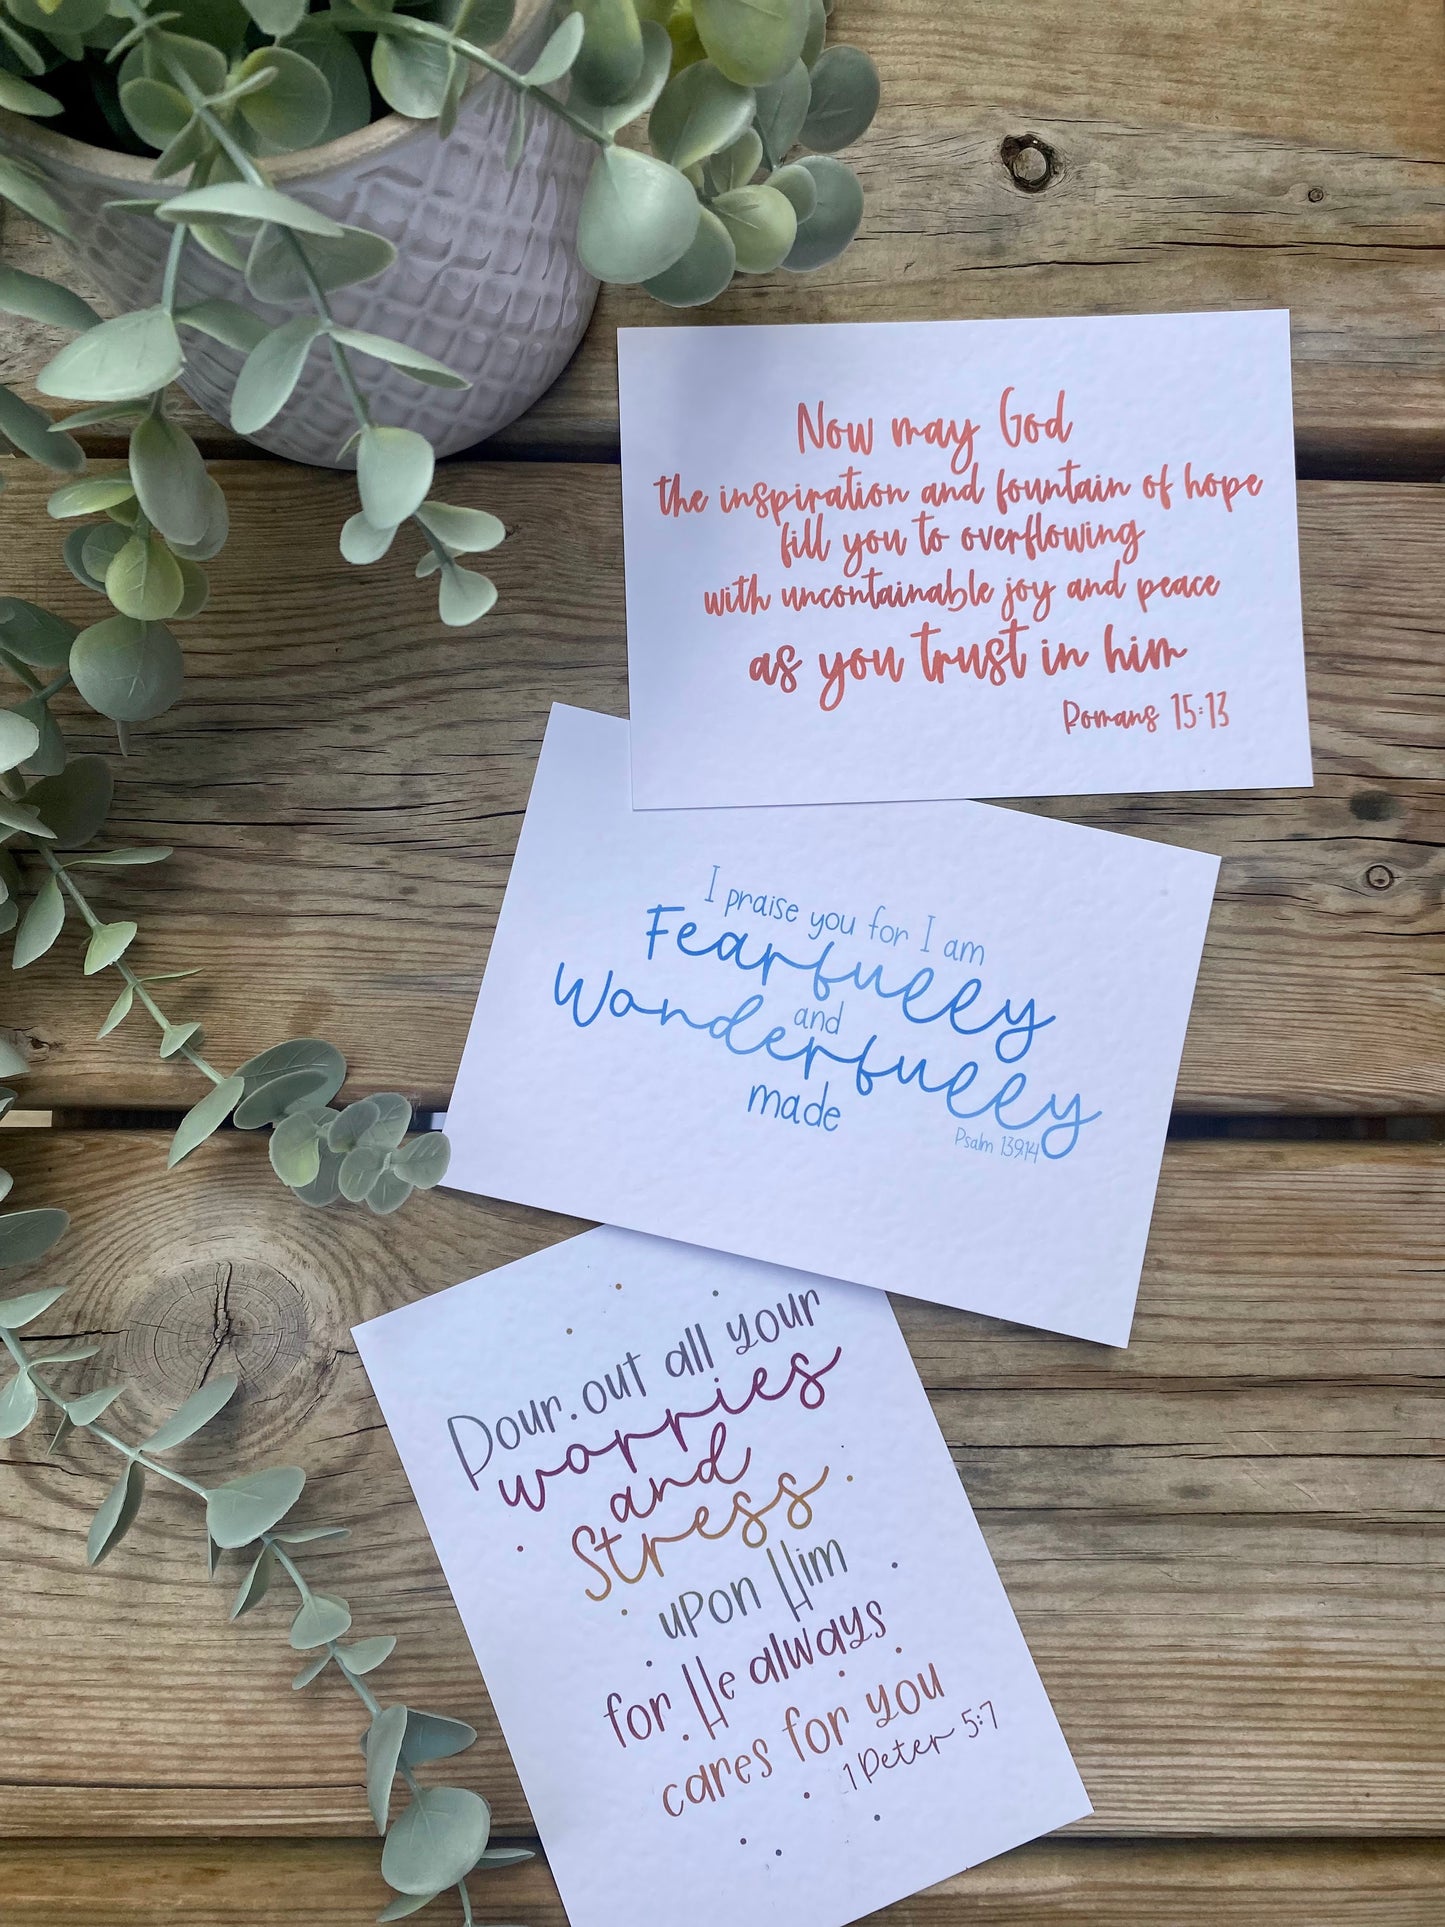 Now may God
the inspiration and fountain of hope
fill you to overflowing
with uncontainable joy and peace
as you trust in him
Romans 15:13
I praise you for I am
Fearfully
and
Wonderfully
made
Psalm 139:14
Pour out all your
worries
and
Stress
upon Him
for He always
cares for you
1 Peter 5:7